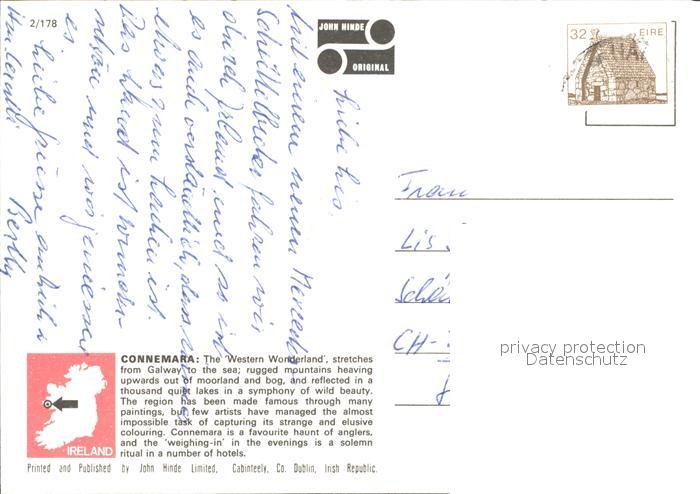 2/178
JOHN HINDE
ORIGINAL
32
EIRE
Liebe Lis.
Mit einem neuen Mercedes
fahren wir
durch Irland und es ist
es auch verständlich, dass
etwas zum Lachen ist.
Das Land ist wunder-
schön und wir geniessen
es.
Liebe Grüsse auch
Frau
Lis
CH-
privacy protection
Datenschutz
CONNEMARA: The 'Western Wonderland', stretches
from Galway to the sea; rugged mountains heaving
upwards out of moorland and bog, and reflected in a
thousand quiet lakes in a symphony of wild beauty.
The region has been made famous through many
paintings, but few artists have managed the almost
impossible task of capturing its strange and elusive
colouring. Connemara is a favourite haunt of anglers,
and the 'weighing-in' in the evenings is a solemn
ritual in a number of hotels.
IRELAND
Printed and Published by John Hinde Limited, Cabinteely, Co. Dublin, Irish Republic.